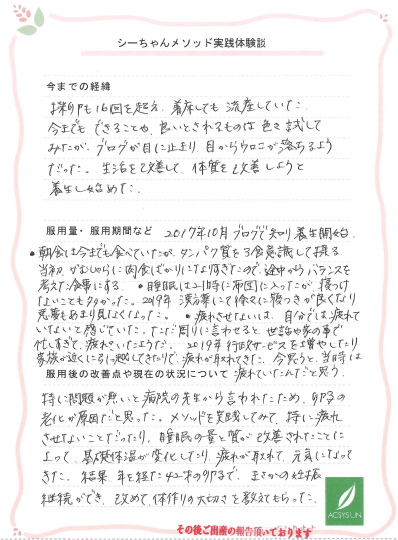 シーちゃんメソッド実践体験談
今までの経緯
採卵も16回を超え、着床しても流産していた。
今までも できることや、良いとされるものは 色々試して
みたが、ブログが目に止まり、目からウロコが落ちるよう
だった。生活を改善して、体質を改善しようと
養生し始めた。
服用量・服用期間など 2017年10月ブログで知り養生開始。
●朝食は今までも食べていたが、タンパク質を3食意識して摂る。
当初、がむしゃらに肉食ばかりになりすぎたので、途中からバランスを
考えた食事にする。●睡眠は21時に布団に入ったが、寝つけ
ないことも多かった。2019年 漢方薬にて徐々に寝つきが良くなり
悪夢もあまり見なくなった。●疲れさせないは、自分では疲れて
いないと感じていた。ただ周りに言わせると、世話や家の事で
忙しすぎて、疲れていたようだ。2019年行政サービスを増やしたり
家族が近くに引っ越してきたりで、疲れが取れてきた。今思うと、当時は
服用後の改善点や現在の状況について 疲れていたんだと思う。
特に問題が無いと病院の先生から言われたため、卵の
老化が原因だと思った。メソッドを実践してみて、特に疲れ
させないことだったり、睡眠の量と質が改善されたことに
よって、基礎体温が変化したり、疲れが取れて、元気になって
きた。結果、年を経た42才の卵で、まさかの妊娠
継続ができ、改めて、体作りの大切さを教えてもらった。
ACSYSUN
その後ご出産の報告頂いております